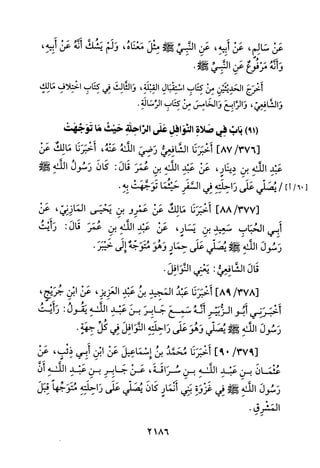 عَنْ سَالِمٍ، عَنْ أَبِيهِ، عَنِ النَّبِيِّ ﷺ مِثْلَ مَعْنَاهُ، وَلَمْ يَشُكَّ أَنَّهُ عَنْ أَبِيهِ،
وَأَنَّهُ مَرْفُوعٌ عَنِ النَّبِيِّ ﷺ.
أَخْرَجَ الحَدِيثَيْنِ مِنْ كِتَابِ اسْتِقْبَالِ القِبْلَةِ، وَالثَّالِثَ فِي كِتَابِ اخْتِلَافِ مَالِكٍ
وَالشَّافِعِيِّ، وَالرَّابِعَ وَالخَامِسَ مِنْ كِتَابِ الرِّسَالَةِ.
(٩١) بَابٌ فِي صَلَاةِ النَّوَافِلِ عَلَى الرَّاحِلَةِ حَيْثُ مَا تَوَجَّهَتْ
[٨٧/٣٧٦] أَخْبَرَنَا الشَّافِعِيُّ رَضِيَ اللَّهُ عَنْهُ، أَخْبَرَنَا مَالِكٌ عَنْ
عَبْدِ اللَّهِ بنِ دِينَارٍ، عَنْ عَبْدِ اللَّهِ بنِ عُمَرَ قَالَ: كَانَ رَسُولُ اللَّهِ ﷺ
[٦٠/أ] / يُصَلِّي عَلَى رَاحِلَتِهِ فِي السَّفَرِ حَيْثُمَا تَوَجَّهَتْ بِهِ.
[٨٨/٣٧٧] أَخْبَرَنَا مَالِكٌ عَنْ عَمْرِو بنِ يَحْيَى المَازِنِيِّ، عَنْ
أَبِي الحُبَابِ سَعِيدِ بنِ يَسَارٍ، عَنْ عَبْدِ اللَّهِ بنِ عُمَرَ قَالَ: رَأَيْتُ
رَسُولَ اللَّهِ ﷺ يُصَلِّي عَلَى حِمَارٍ وَهُوَ مُتَوَجِّهٌ إِلَى خَيْبَرَ.
قَالَ الشَّافِعِيُّ: يَعْنِي النَّوَافِلَ.
[٨٩/٣٧٨] أَخْبَرَنَا عَبْدُ المَجِيدِ بنُ عَبْدِ العَزِيزِ، عَنْ ابْنِ جُرَيْجٍ،
أَخْبَرَنِي أَبُو الزُّبَيْرِ أَنَّهُ سَمِعَ جَابِرَ بنَ عَبْدِ اللَّهِ يَقُولُ: رَأَيْتُ
رَسُولَ اللَّهِ ﷺ يُصَلِّي وَهُوَ عَلَى رَاحِلَتِهِ النَّوَافِلَ فِي كُلِّ جِهَةٍ.
[٩٠/٣٧٩] أَخْبَرَنَا مُحَمَّدُ بنُ إِسْمَاعِيلَ عَنْ ابْنِ أَبِي ذِئْبٍ، عَنْ
عُثْمَانَ بنِ عَبْدِ اللَّهِ بنِ سُرَاقَةَ، عَنْ جَابِرِ بنِ عَبْدِ اللَّهِ أَنَّ
رَسُولَ اللَّهِ ﷺ فِي غَزْوَةِ بَنِي أَنْمَارٍ كَانَ يُصَلِّي عَلَى رَاحِلَتِهِ مُتَوَجِّهاً قِبَلَ
المَشْرِقِ.
٢١٨٦